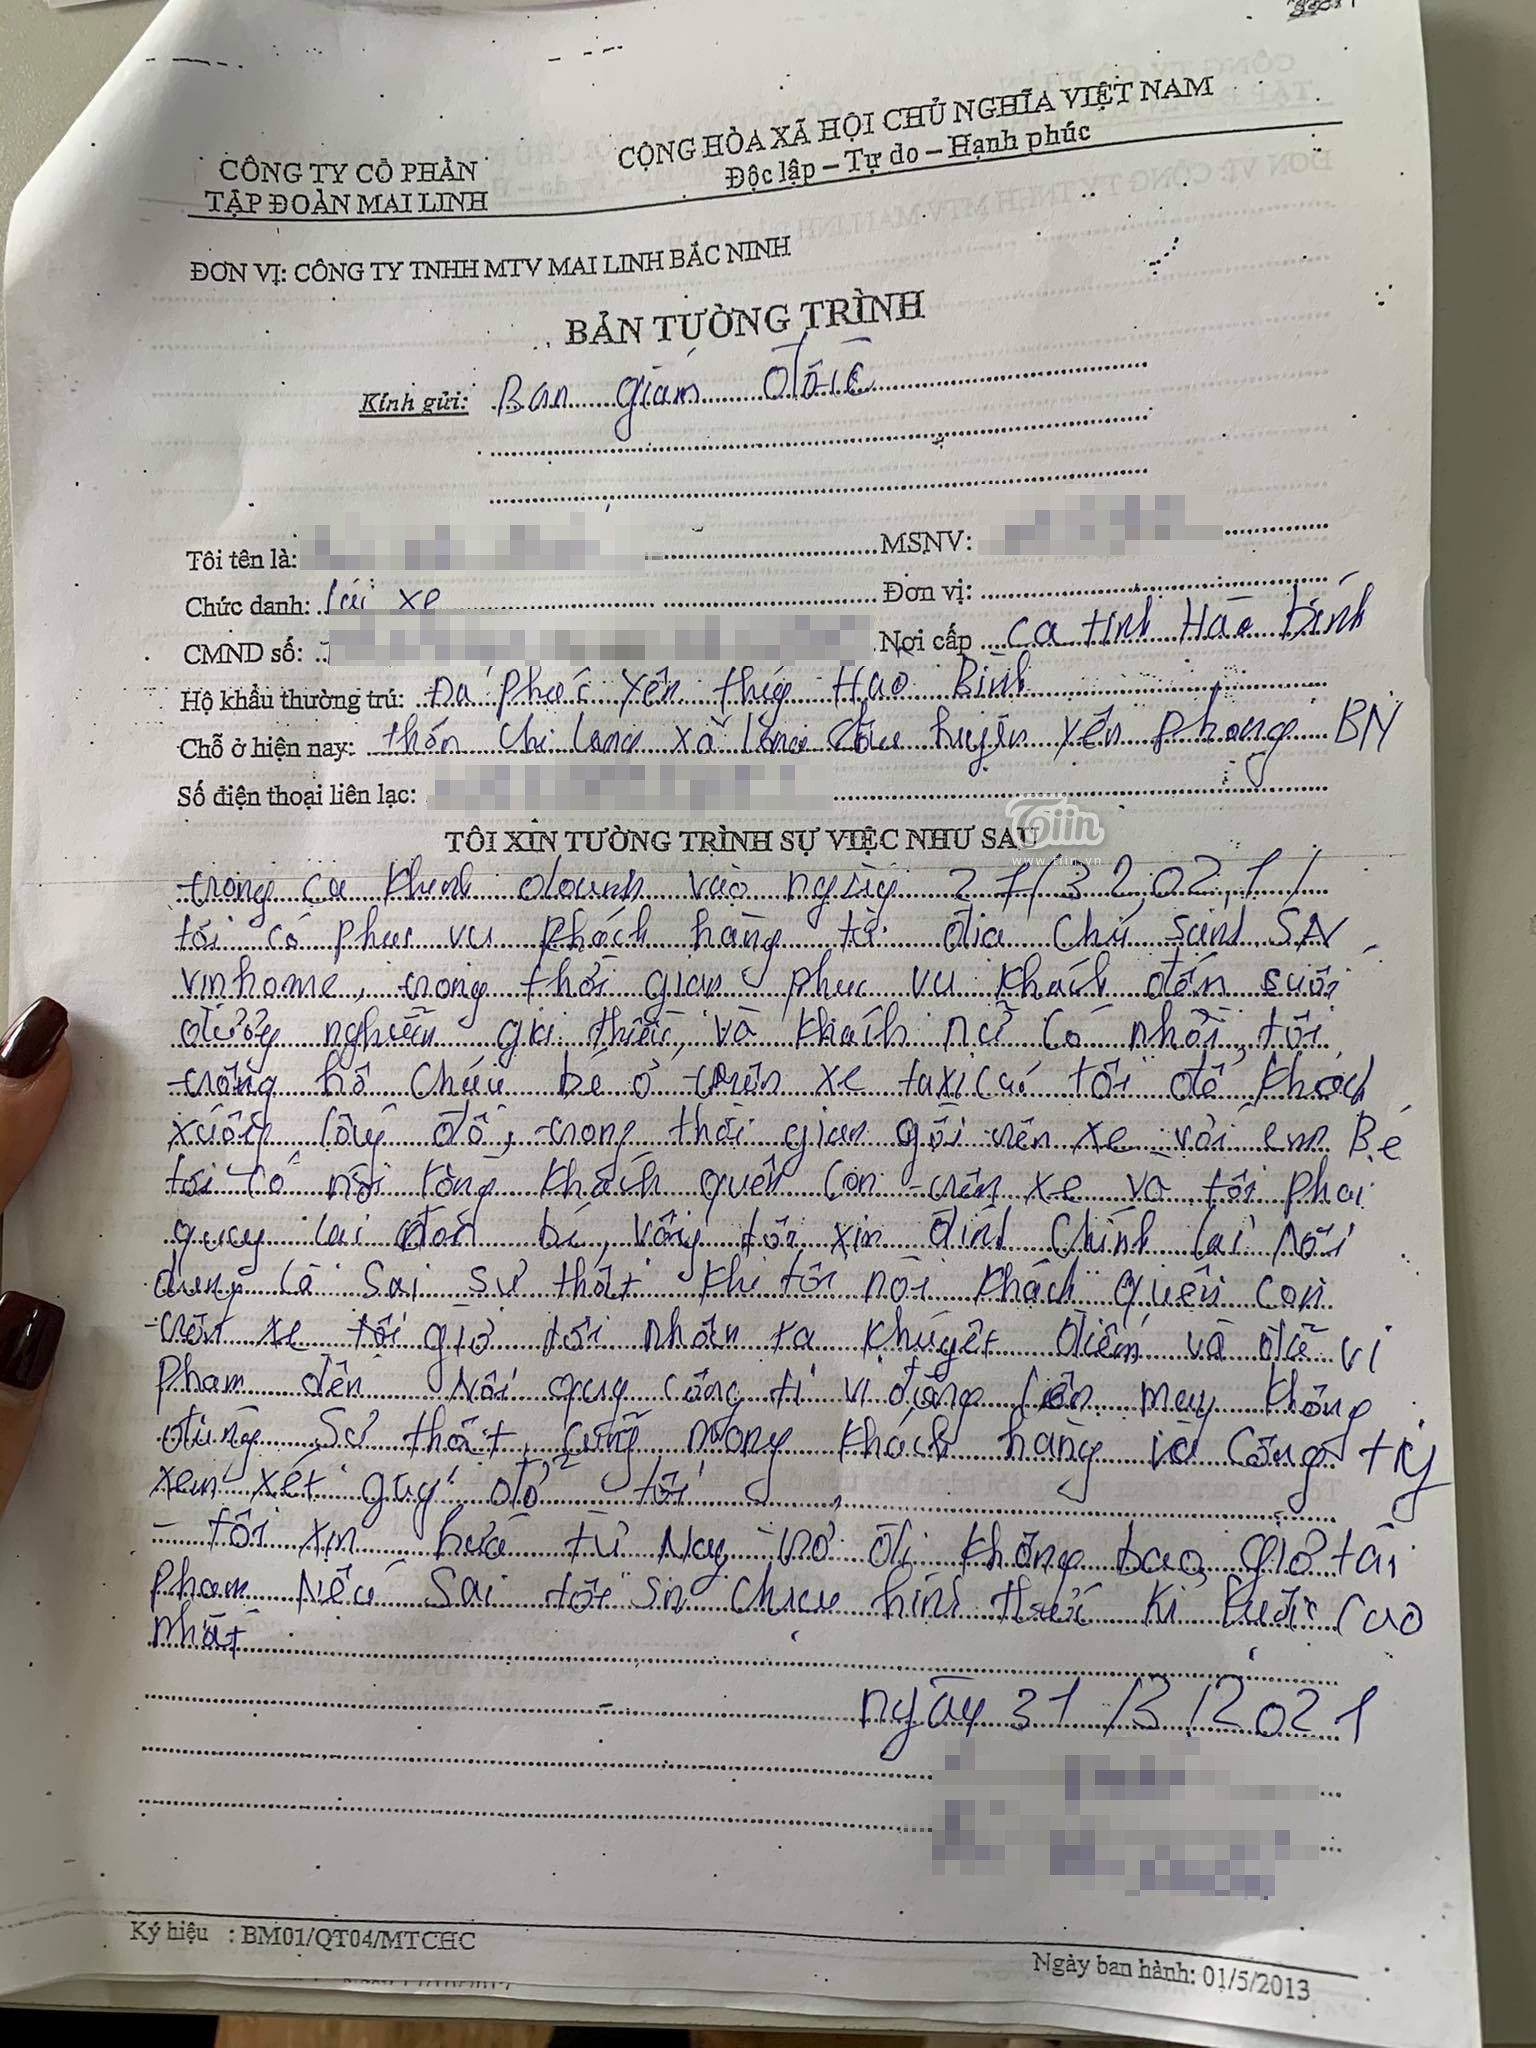 CÔNG TY CỔ PHẦN
TẬP ĐOÀN MAI LINH
CỘNG HÒA XÃ HỘI CHỦ NGHĨA VIỆT NAM
Độc lập – Tự do – Hạnh phúc
ĐƠN VỊ: CÔNG TY TNHH MTV MAI LINH BẮC NINH
BẢN TƯỜNG TRÌNH
Kính gửi: Ban giám đốc
Tôi tên là: MSNV:
Chức danh: lái xe Đơn vị:
CMND số: Nơi cấp ca tỉnh Hào bình
Hộ khẩu thường trú: Đa phúc Yên thủy Hào Bình
Chỗ ở hiện nay: thôn Chi Long xã long châu huyện yên phong BN
Số điện thoại liên lạc:
TÔI XIN TƯỜNG TRÌNH SỰ VIỆC NHƯ SAU
Tiin
www.tiin.vn
trong ca kinh doanh vào ngày 27/3 2021
tôi có phục vụ khách hàng từ địa chỉ
vinhome, trong thời gian phục vụ khách đến cuối
đường nguyễn gia thiều, và khách nữ có nhờ tôi
trông hộ cháu bé ở trên xe taxi của tôi để khách
xuống lấy đồ, trong thời gian gồi trên xe với em Bé
tôi có nói rằng khách quên con trên xe và tôi phai
quay lai đón bé, vây tôi xin đính chính lai nôi
dung là sai sự thât khi tôi nói khách quên con
trên xe tôi giờ tôi nhân ra khuyết điểm và đã vi
phạm đến nôi quy công ti vì đăng lên may không
đúng sự thât, cũng mong khách hàng và công ty
xem xét giúp đỡ tôi
- tôi xin hưá từ nay trở đi không bao giờ tái
phạm nếu sai tôi sn chịu hình thức kỉ luật cao
nhất
ngày 31 /3 /2021
Ký hiệu : BM01/QT04/MTCHC
Ngày ban hành: 01/5/2013